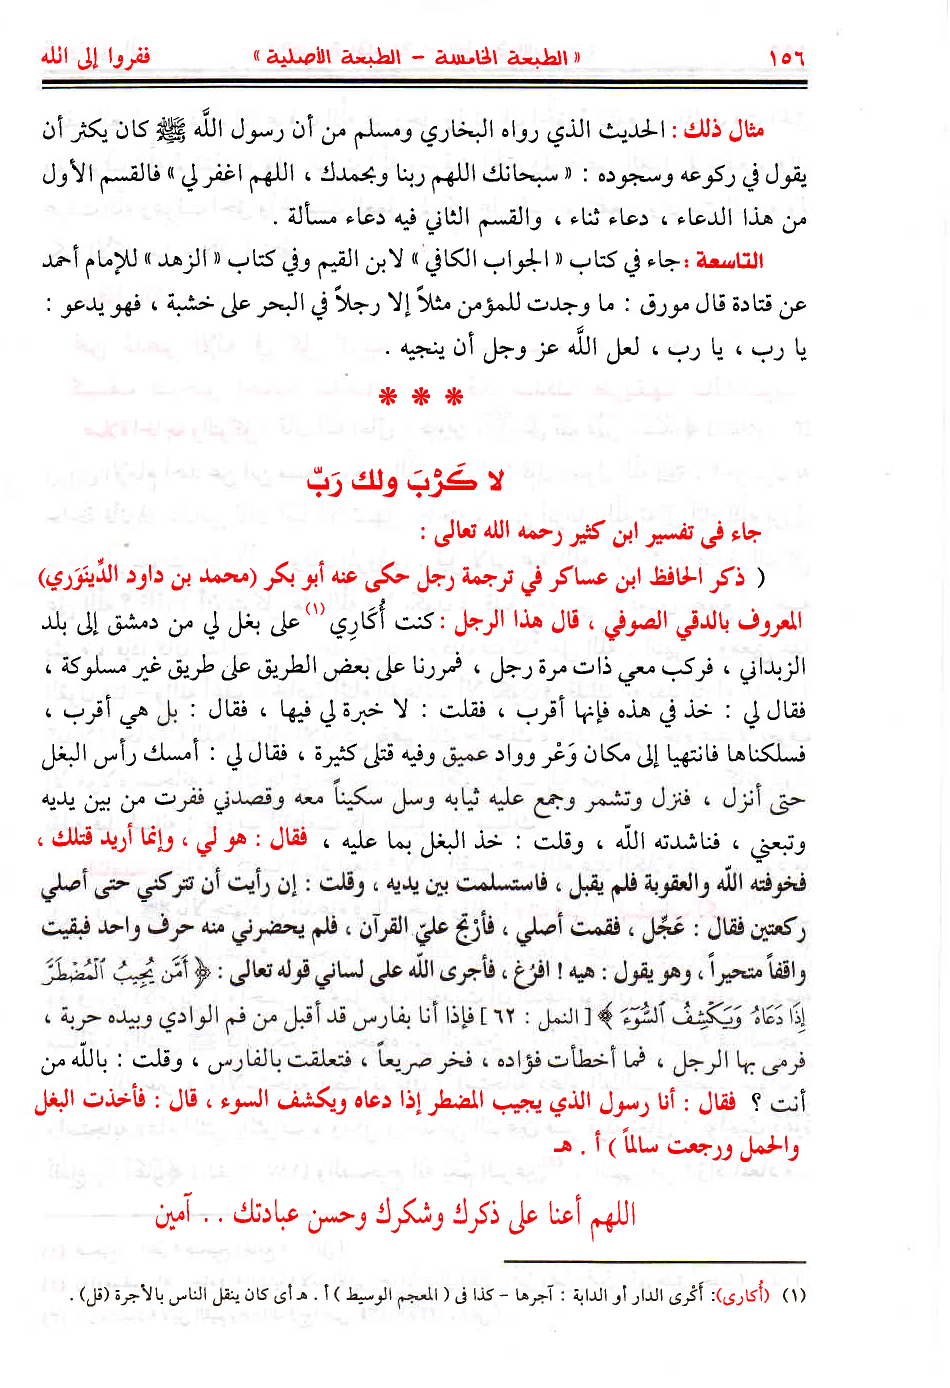 ١٥٦ «الطبعة الخامسة - الطبعة الأصلية» ففروا إلى الله
مثال ذلك : الحديث الذي رواه البخاري ومسلم من أن رسول اللَّه ﷺ كان يكثر أن
يقول في ركوعه وسجوده : « سبحانك اللهم ربنا وبحمدك ، اللهم اغفر لي » فالقسم الأول
من هذا الدعاء ، دعاء ثناء ، والقسم الثاني فيه دعاء مسألة .
التاسعة : جاء في كتاب « الجواب الكافي » لابن القيم وفي كتاب « الزهد » للإمام أحمد
عن قتادة قال مورق : ما وجدت للمؤمن مثلاً إلا رجلاً في البحر على خشبة ، فهو يدعو :
يا رب ، يا رب ، لعل اللَّه عز وجل أن ينجيه .
* * *
لا كَرْبَ ولك رَبّ
جاء فى تفسير ابن كثير رحمه الله تعالى :
( ذكر الحافظ ابن عساكر في ترجمة رجل حكى عنه أبو بكر (محمد بن داود الدِّينَوَري)
المعروف بالدقي الصوفي ، قال هذا الرجل : كنت أُكَارِي (١) على بغل لي من دمشق إلى بلد
الزبداني ، فركب معي ذات مرة رجل ، فمررنا على بعض الطريق على طريق غير مسلوكة ،
فقال لي : خذ في هذه فإنها أقرب ، فقلت : لا خبرة لي فيها ، فقال : بل هي أقرب ،
فسلكناها فانتهيا إلى مكان وَعْر وواد عميق وفيه قتلى كثيرة ، فقال لي : أمسك رأس البغل
حتى أنزل ، فنزل وتشمر وجمع عليه ثيابه وسل سكيناً معه وقصدني ففرت من بين يديه
وتبعني ، فناشدته اللَّه ، وقلت : خذ البغل بما عليه ، فقال : هو لي ، وإنما أريد قتلك ،
فخوفته اللَّه والعقوبة فلم يقبل ، فاستسلمت بين يديه ، وقلت : إن رأيت أن تتركني حتى أصلي
ركعتين فقال : عَجِّل ، فقمت أصلي ، فأرْتج عليّ القرآن ، فلم يحضرني منه حرف واحد فبقيت
واقفاً متحيراً ، وهو يقول : هيه ! افرُغ ، فأجرى اللَّه على لساني قوله تعالى : ﴿ أَمَّن يُجِيبُ ٱلْمُضْطَرَّ
إِذَا دَعَاهُ وَيَكْشِفُ ٱلسُّوٓءَ ﴾ [ النمل : ٦٢ ] فإذا أنا بفارس قد أقبل من فم الوادي وبيده حربة ،
فرمى بها الرجل ، فما أخطأت فؤاده ، فخر صريعاً ، فتعلقت بالفارس ، وقلت : باللَّه من
أنت ؟ فقال : أنا رسول الذي يجيب المضطر إذا دعاه ويكشف السوء ، قال : فأخذت البغل
والحمل ورجعت سالماً ) أ . هـ
اللهم أعنا على ذكرك وشكرك وحسن عبادتك . . آمين
(١) (أُكارى): أكْرى الدار أو الدابة : آجرها - كذا فى ( المعجم الوسيط ) أ . هـ أى كان ينقل الناس بالأجرة (قل) .